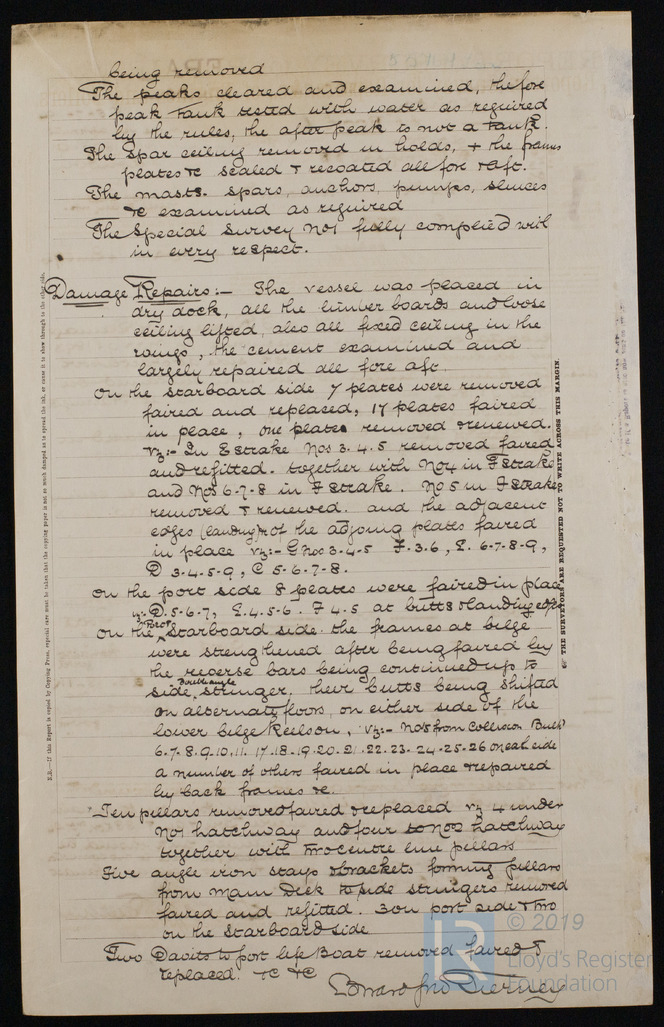 being removed
The peaks cleared and examined, the fore
peak tank tested with water as required
by the rules, the after peak is not a tank.
The Spar ceiling removed in holds, + the frames
plates &c scaled & recoated all fore & aft.
The masts. spars, anchors, pumps, sluices
&c examined as required
The Special Survey No1 fully complied with
in every respect.
Damage Repairs:— The vessel was placed in
dry dock, all the limber boards and loose
ceiling lifted, also all fixed ceiling in the
wings, the cement examined and
largely repaired all fore aft.
On the starboard side 7 plates were removed
faired and replaced, 17 plates faired
in place, one plate removed & renewed.
Vz:- In E strake Nos 3. 4. 5 removed faired
and refitted. together with No4 in F strake
and Nos 6-7-8 in F strake. No 5 in F strake
removed & renewed. and the adjacent
edges (landing) of the adjoing plates faired
in place vz:- G Nos 3-4-5 F. 3. 6, E. 6-7-8-9,
D 3-4-5-9, C 5-6-7-8.
On the port side 8 plates were faired in place
vz:- D. 5-6-7, E. 4. 5-6. F 4-5 at butts & landing edges
On the Port & Starboard side the frames at bilge
were strengthened after being faired by
the reverse bars being continued up to
side double angle stringer, their butts being shifted
on alternate floors, on either side of the
lower bilge keelson, Vz:- Nos from Collision Bulk
6-7-8-9-10. 11. 17-18-19-20-21-22-23-24-25-26 on each side
a number of others faired in place & repaired
by back frames &c.
Ten pillars removed faired & replaced vz 4 under
No1 hatchway and four to No2 hatchway
together with two centre line pillars
Five angle iron stays & brackets forming pillars
from Main Deck to side stringers removed
faired and refitted. 3 on port side & two
on the Starboard side
Two Davits to port life Boat removed faired &
replaced. &c &c
THE SURVEYORS ARE REQUESTED NOT TO WRITE ACROSS THIS MARGIN.
N.B.—If this Report is copied by Copying Press, especial care must be taken that the copying paper is not so much damped as to spread the ink, or cause it to show through to the other side.
© 2019
Lloyd's Register
Foundation